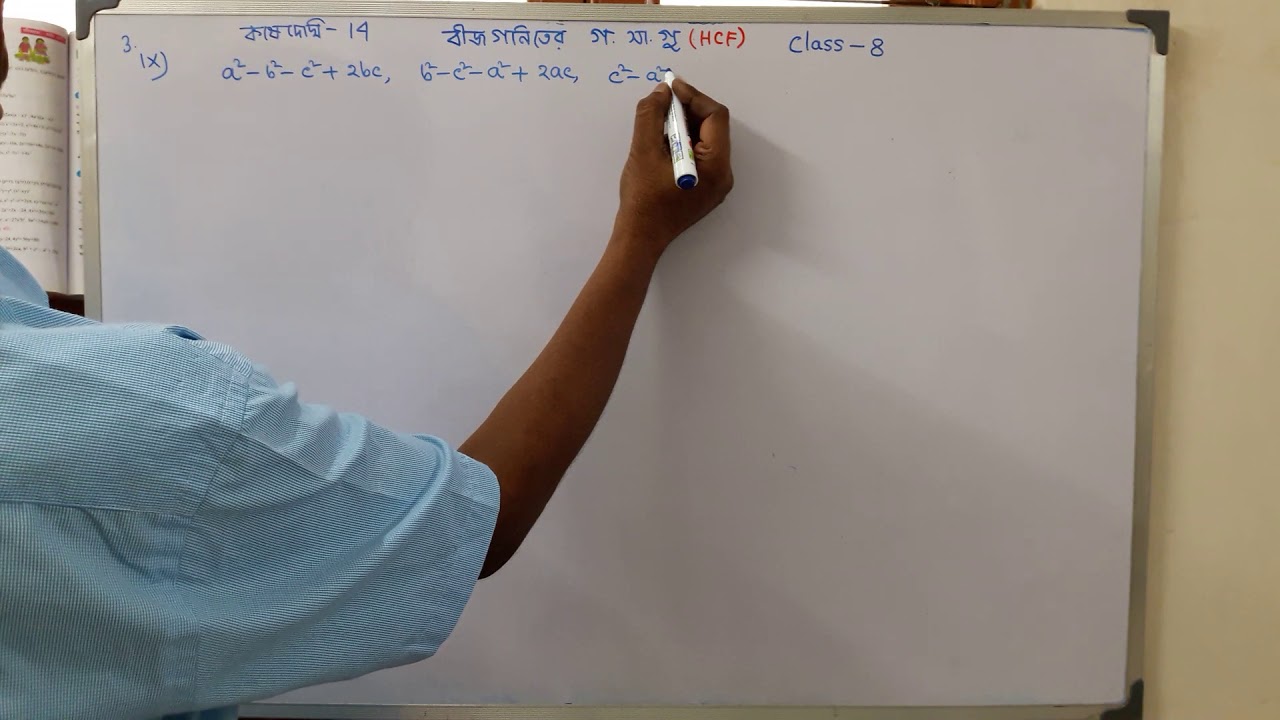 3. কষে দেখি - 14 বীজগণিতের গ. সা. গু (HCF) Class - 8
ix) a² - b² - c² + 2bc, b² - c² - a² + 2ac, c² - a²